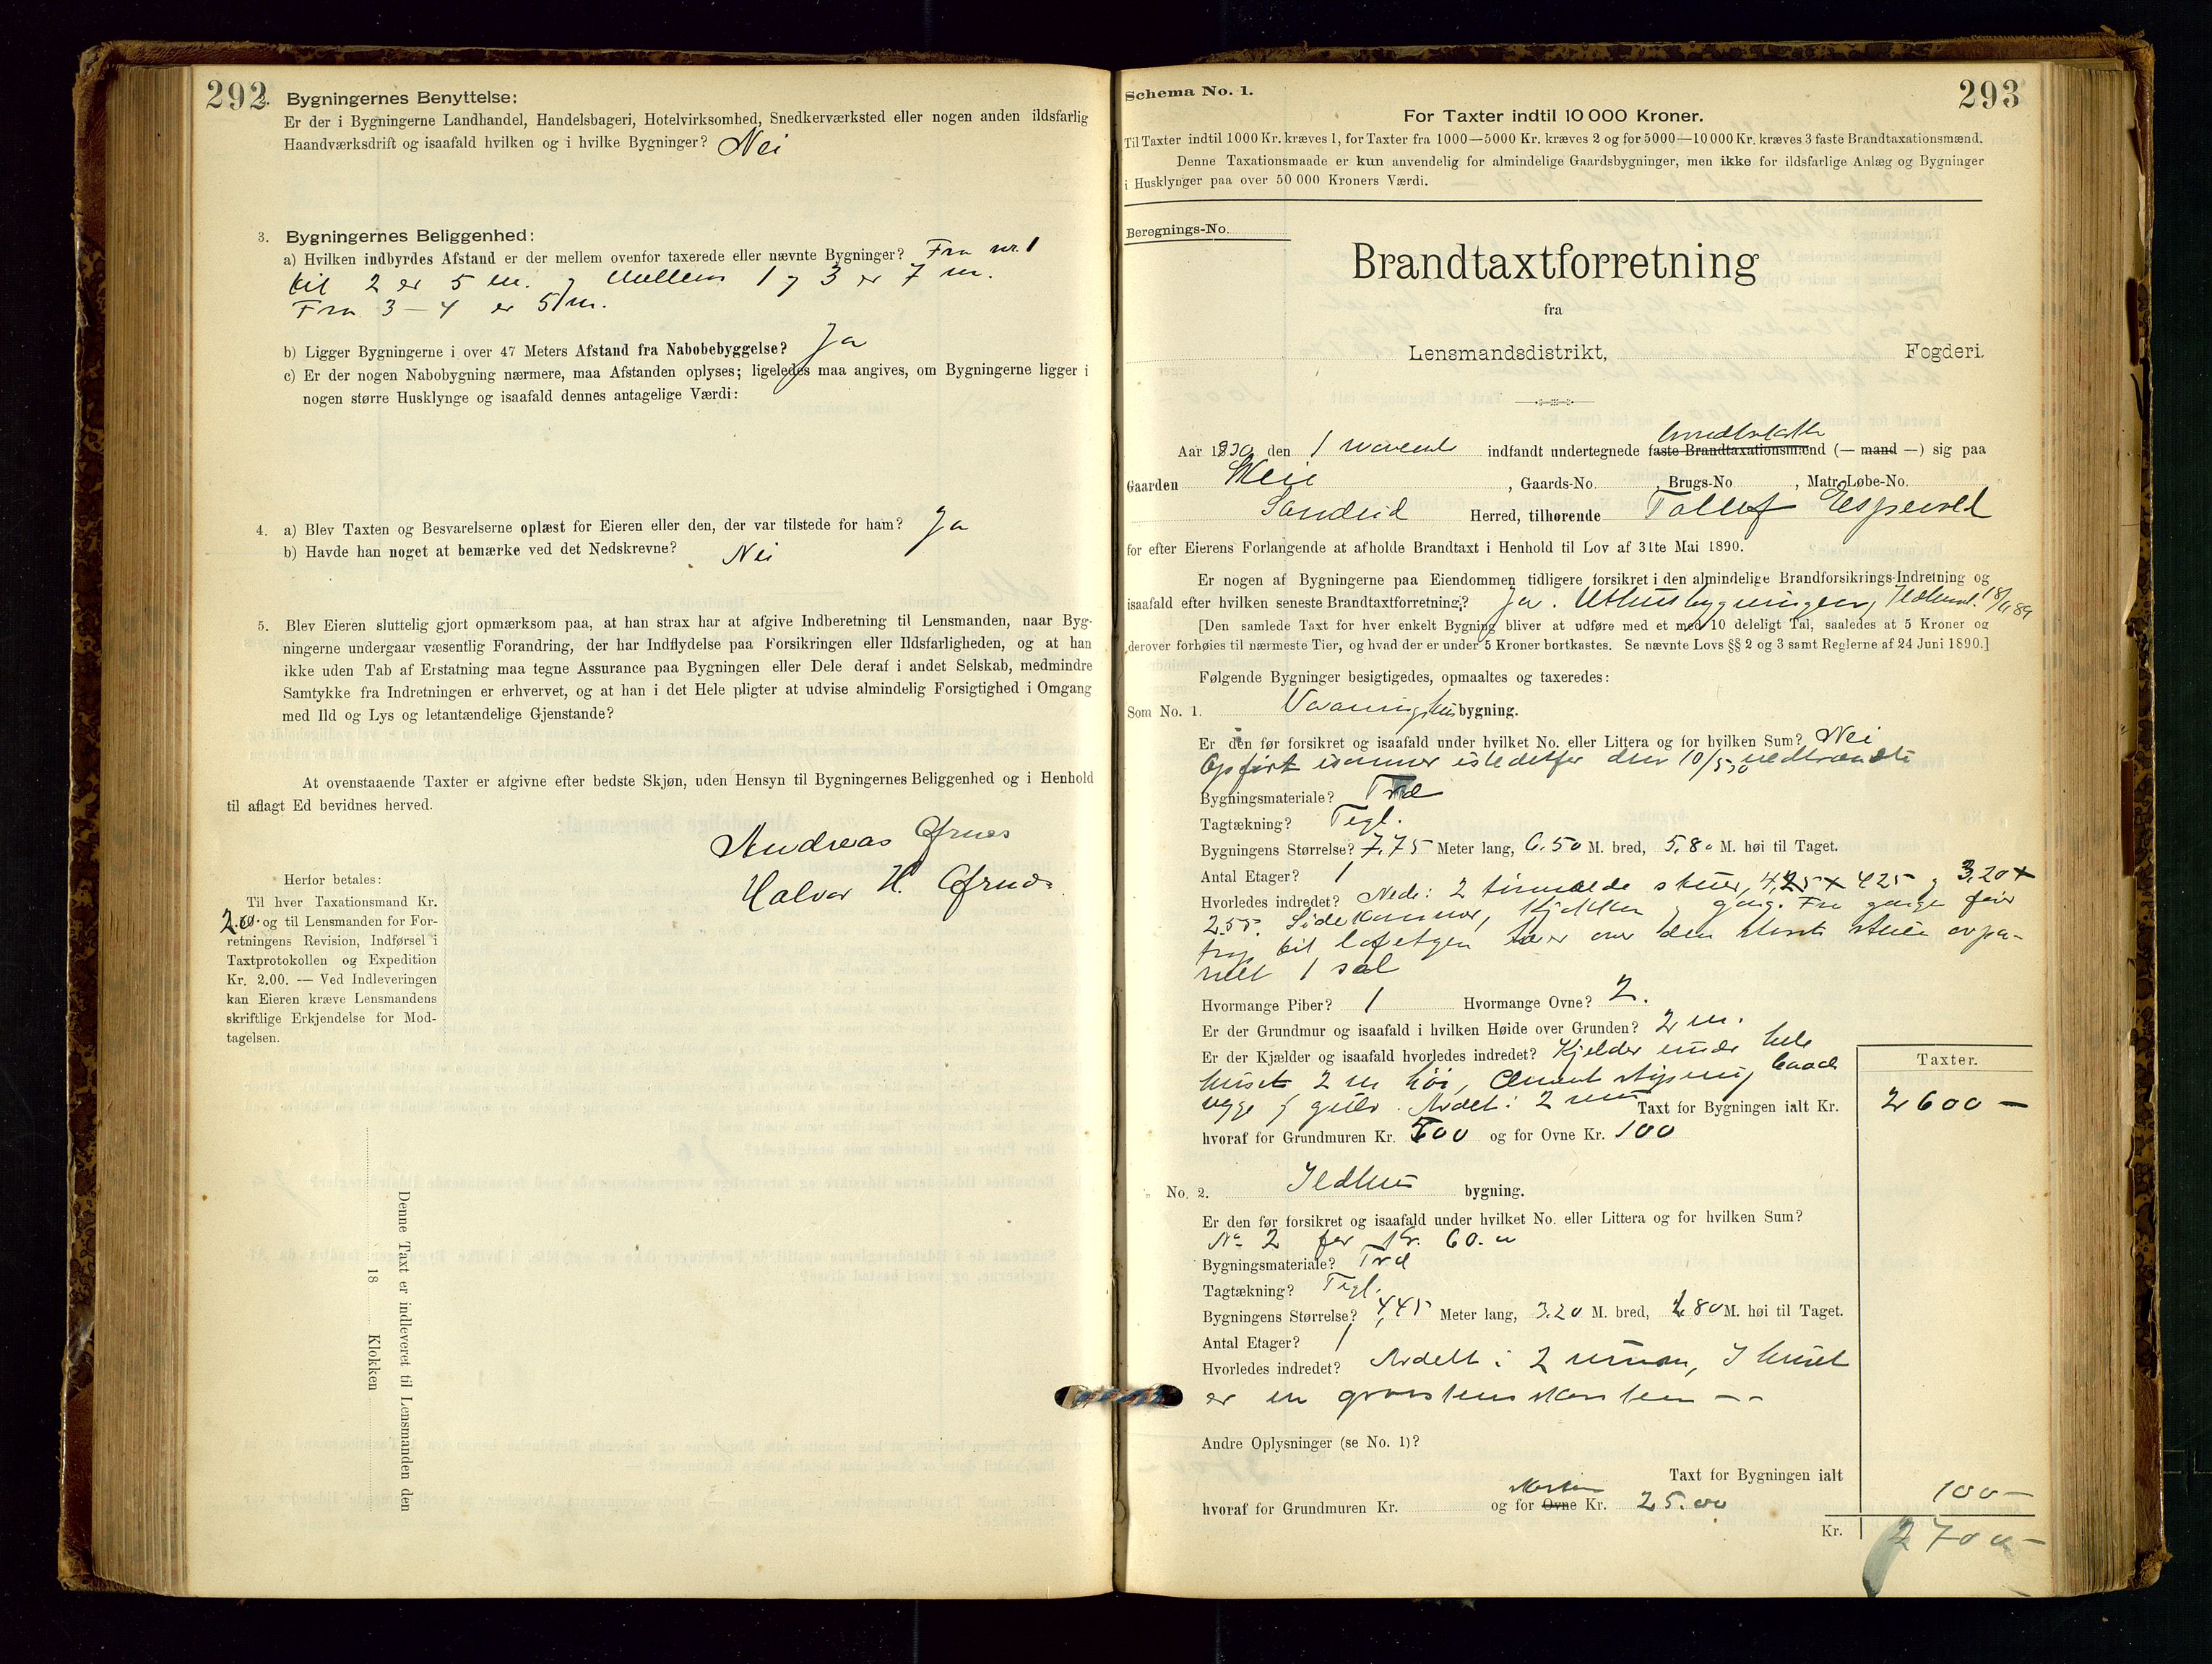 292
2. Bygningernes Benyttelse:
Er der i Bygningerne Landhandel, Handelsbageri, Hotelvirksomhed, Snedkerværksted eller nogen anden ildsfarlig
Haandværksdrift og isaafald hvilken og i hvilke Bygninger? Nei
3. Bygningernes Beliggenhed:
a) Hvilken indbyrdes Afstand er der mellem ovenfor taxerede eller nævnte Bygninger? Fra nr. 1
til 2 er 5 m. og mellem 1 og 3 er 7 m.
Fra 3 - 4 er 5 m.
b) Ligger Bygningerne i over 47 Meters Afstand fra Nabobebyggelse? Ja
c) Er der nogen Nabobygning nærmere, maa Afstanden oplyses; ligeledes maa angives, om Bygningerne ligger i
nogen større Husklynge og isaafald dennes antagelige Værdi:
4. a) Blev Taxten og Besvarelserne oplæst for Eieren eller den, der var tilstede for ham? Ja
b) Havde han noget at bemærke ved det Nedskrevne? Nei
5. Blev Eieren sluttelig gjort opmærksom paa, at han strax har at afgive Indberetning til Lensmanden, naar Byg-
ningerne undergaar væsentlig Forandring, der har Indflydelse paa Forsikringen eller Ildsfarligheden, og at han
ikke uden Tab af Erstatning maa tegne Assurance paa Bygningen eller Dele deraf i andet Selskab, medmindre
Samtykke fra Indretningen er erhvervet, og at han i det Hele pligter at udvise almindelig Forsigtighed i Omgang
med Ild og Lys og letantændelige Gjenstande?
At ovenstaaende Taxter er afgivne efter bedste Skjøn, uden Hensyn til Bygningernes Beliggenhed og i Henhold
til aflagt Ed bevidnes herved.
Andreas Øfrnes
Halvor H. Øfrnes
Herfor betales:
Til hver Taxationsmand Kr.
2.00. og til Lensmanden for For-
retningens Revision, Indførsel i
Taxtprotokollen og Expedition
Kr. 2.00. — Ved Indleveringen
kan Eieren kræve Lensmandens
skriftlige Erkjendelse for Mod-
tagelsen.
Denne Taxt er indleveret til Lensmanden den
18 Klokken
293
Schema No. 1.
For Taxter indtil 10 000 Kroner.
Til Taxter indtil 1000 Kr. kræves 1, for Taxter fra 1000—5000 Kr. kræves 2 og for 5000—10 000 Kr. kræves 3 faste Brandtaxationsmænd.
Denne Taxationsmaade er kun anvendelig for almindelige Gaardsbygninger, men ikke for ildsfarlige Anlæg og Bygninger
i Husklynger paa over 50 000 Kroners Værdi.
Beregnings-No.
Brandtaxtforretning
fra
Lensmandsdistrikt, Fogderi.
Aar 1930 den 1 indfandt undertegnede faste Brandtaxationsmænd (— mand —) sig paa
Gaarden , Gaards-No. , Brugs-No. , Matr.-Løbe-No.
Sandeid Herred, tilhørende Tollef Espevold
for efter Eierens Forlangende at afholde Brandtaxt i Henhold til Lov af 31te Mai 1890.
Er nogen af Bygningerne paa Eiendommen tidligere forsikret i den almindelige Brandforsikrings-Indretning og
isaafald efter hvilken seneste Brandtaxtforretning? Ja. Uthusbygningen, Ildhuset
[Den samlede Taxt for hver enkelt Bygning bliver at udføre med et med 10 deleligt Tal, saaledes at 5 Kroner og
derover forhøies til nærmeste Tier, og hvad der er under 5 Kroner bortkastes. Se nævnte Lovs §§ 2 og 3 samt Reglerne af 24 Juni 1890.]
Følgende Bygninger besigtigedes, opmaaltes og taxeredes:
Som No. 1. Vaaningshusbygning.
Er den før forsikret og isaafald under hvilket No. eller Littera og for hvilken Sum? Nei
Opført isommer istedetfor den 10/5 30 nedbrændte
Bygningsmateriale? Træ
Tagtækning? Tegl.
Bygningens Størrelse? 7,75 Meter lang, 6.50 M. bred, 5,80 M. høi til Taget.
Antal Etager? 1
Hvorledes indredet? Nede: 2 tømrede stuer, 4,25 x 425 og 3,20 x
2.55. Sidekammer, kjøkken og gang. Fra gange fører
trap til loftetgen
1 sal
Hvormange Piber? 1 Hvormange Ovne? 2.
Er der Grundmur og isaafald i hvilken Høide over Grunden? 2 m.
Er der Kjælder og isaafald hvorledes indredet? Kjelder under hele
huset 2 m høi, Cement støpning baade
vegge og gulv. Avdelt i 2 rum Taxt for Bygningen ialt Kr.
Taxter.
2600 —
hvoraf for Grundmuren Kr. 500 og for Ovne Kr. 100
No. 2. Ildhus bygning.
Er den før forsikret og isaafald under hvilket No. eller Littera og for hvilken Sum?
No 2 for Kr. 60.
Bygningsmateriale? Træ
Tagtækning? Tegl.
Bygningens Størrelse? 4,45 Meter lang, 3.20 M. bred, 2,80 M. høi til Taget.
Antal Etager? 1
Hvorledes indredet? Avdelt i 2 rum, I huset
er en graasteinsskorstein — —
Andre Oplysninger (se No. 1)?
Taxt for Bygningen ialt 100 —
hvoraf for Grundmuren Kr. og for Ovne Kr. 25.00
Kr. 2700 —